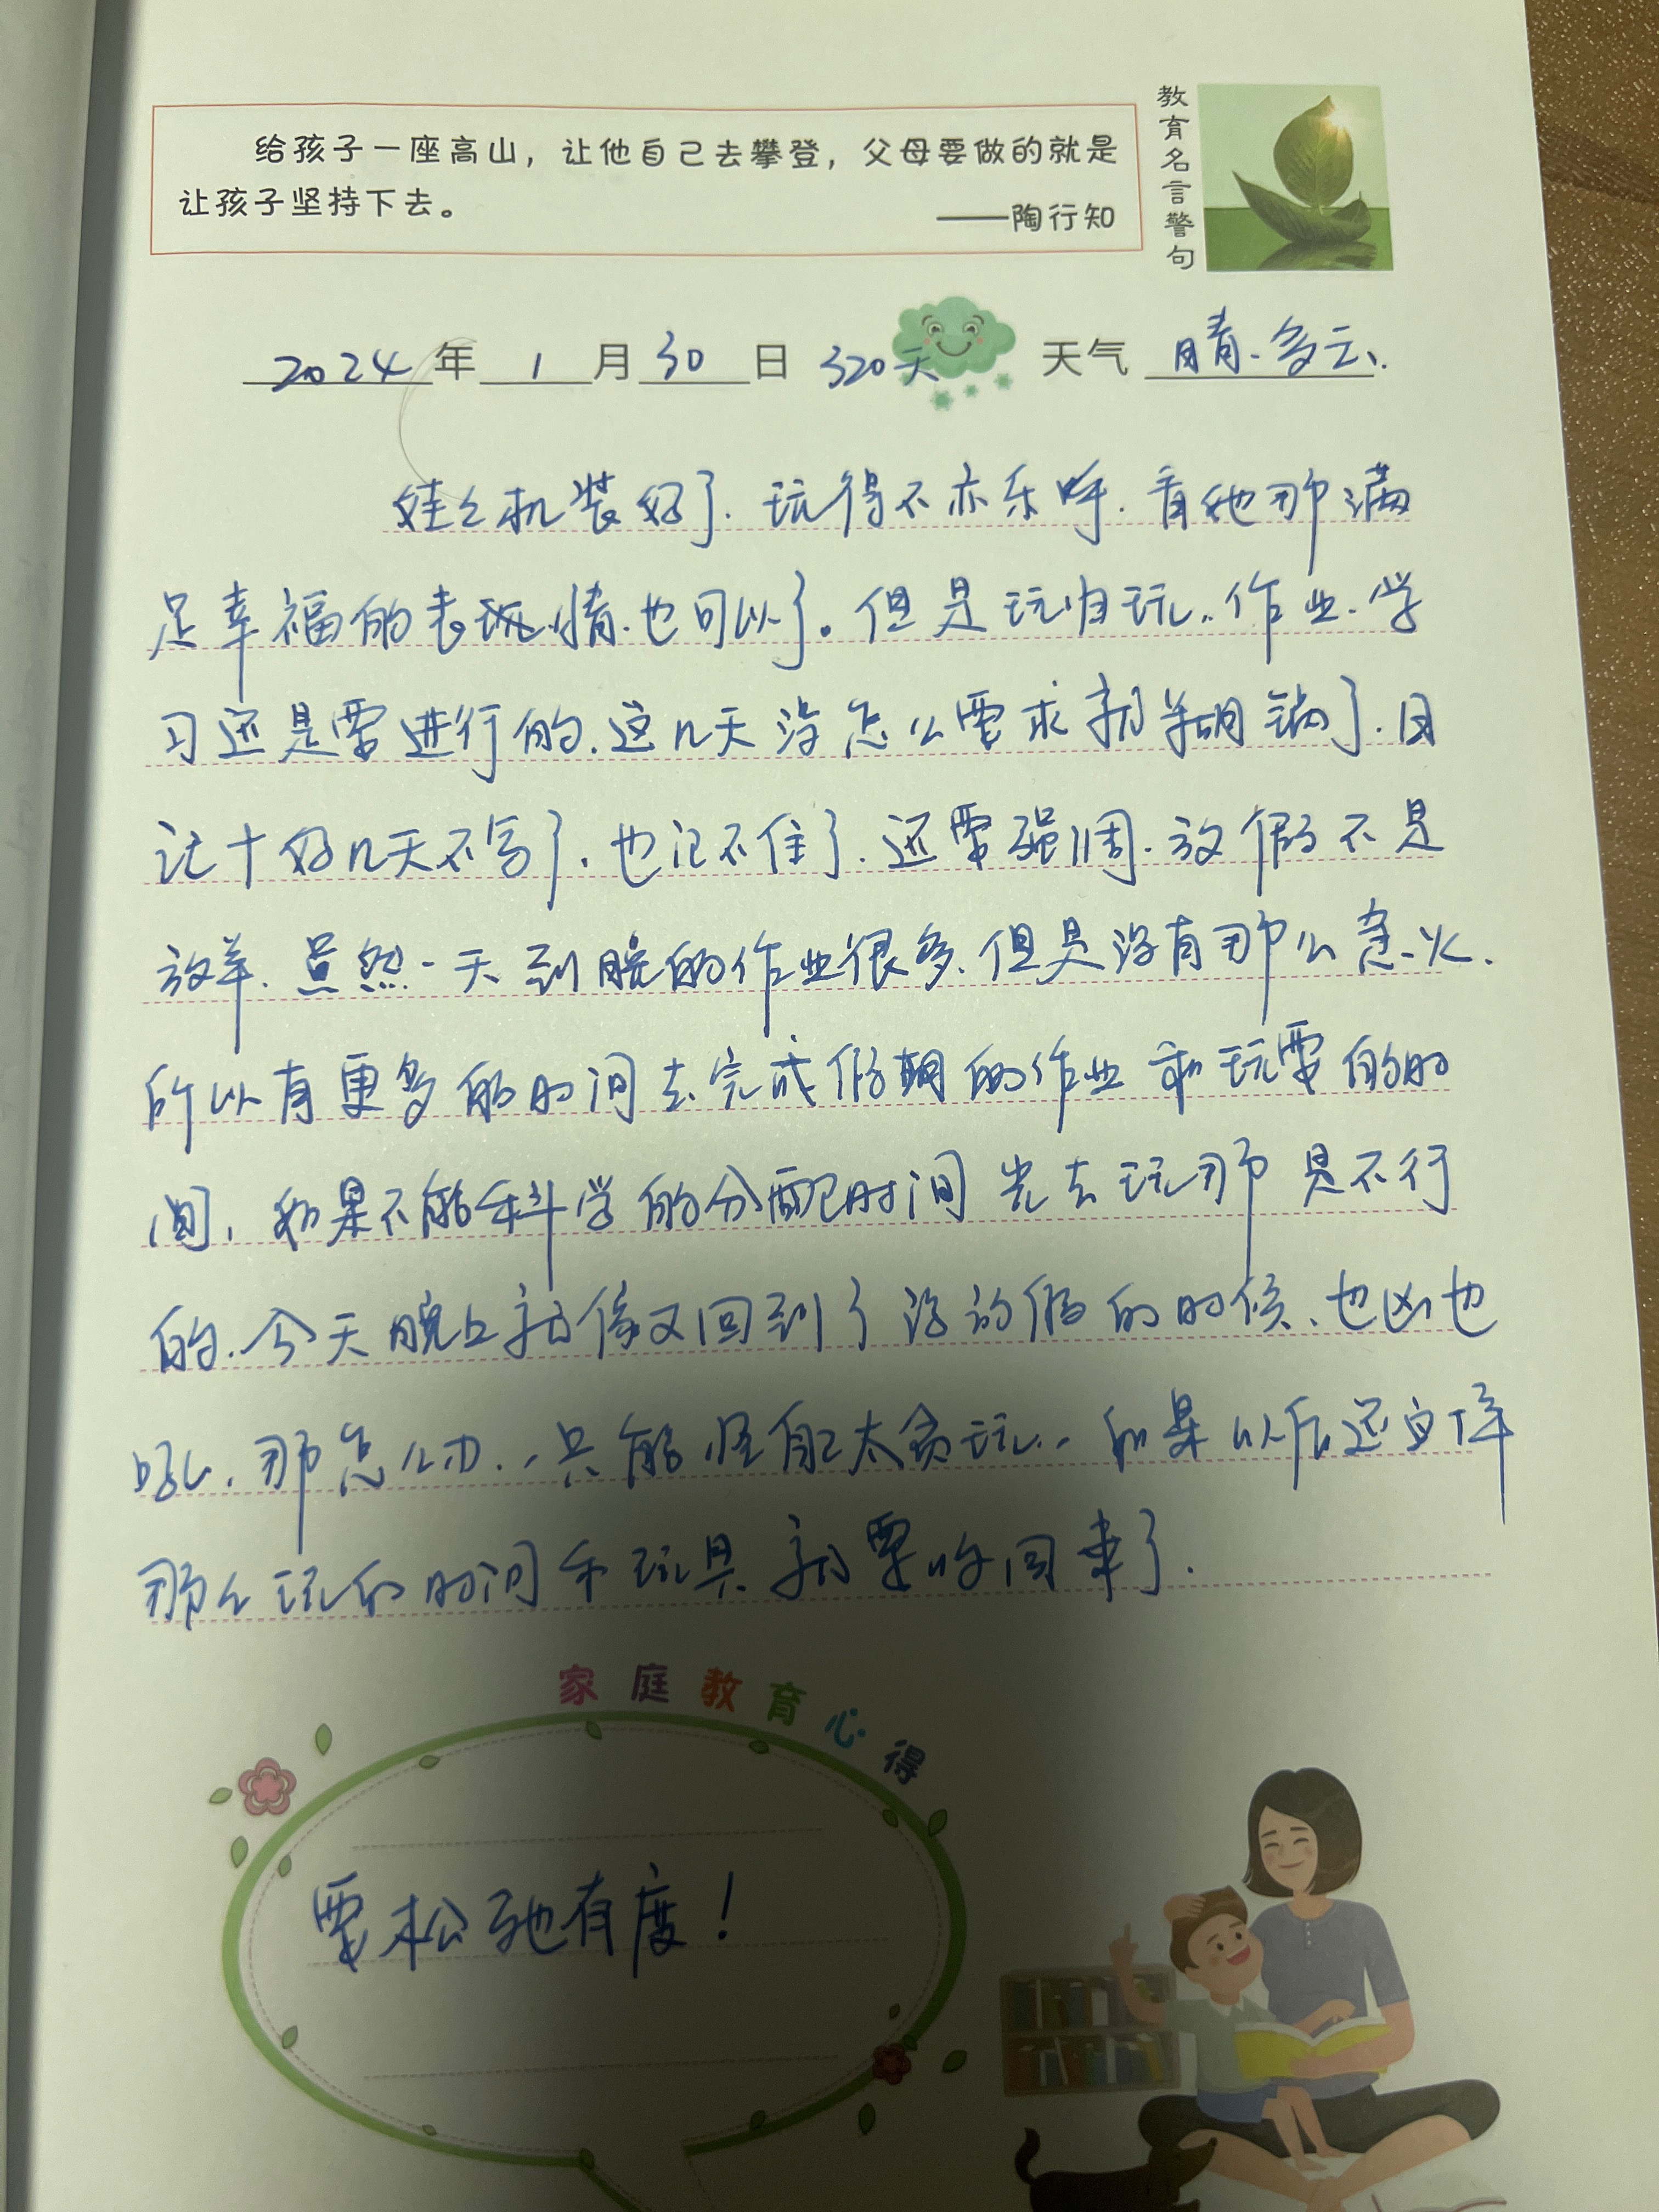 给孩子一座高山，让他自己去攀登，父母要做的就是
让孩子坚持下去。
——陶行知
教育名言警句
2024年1月30日 320天 天气 晴、多云、
娃之机装好了.玩得不亦乐呼.看她那满
足幸福的表现情.也可以了。但是玩归玩..作业.学
习还是要进行的.这几天没怎么要求就羊胡锅了.日
记十好几天不写了.也记不住了.还要强调.放假不是
放羊.虽然一天到晚的作业很多.但是没有那么急火.
所以有更多的时间去完成假期的作业和玩耍的时
间,如果不能科学的分配时间光去玩那是不行
的.今天晚上就像又回到了没放假的时候.也凶也
吼.那怎么办..只能怪自己太贪玩..如果以后还这样
那么玩的时间和玩具就要收回来了.
家庭教育心得
要松弛有度！